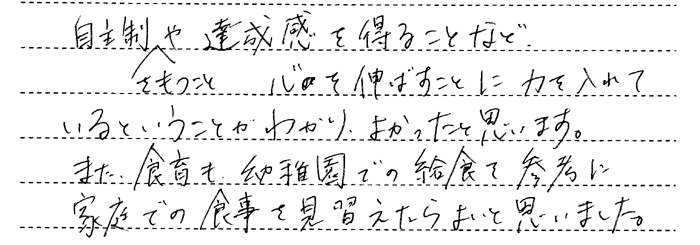 自主制や達成感を得ることなど、
をもつこと 心を伸ばすことに力を入れて
いるということがわかり、よかったと思います。
また、食育も、幼稚園での給食を参考に
家庭での食事を見習えたらよいと思いました。